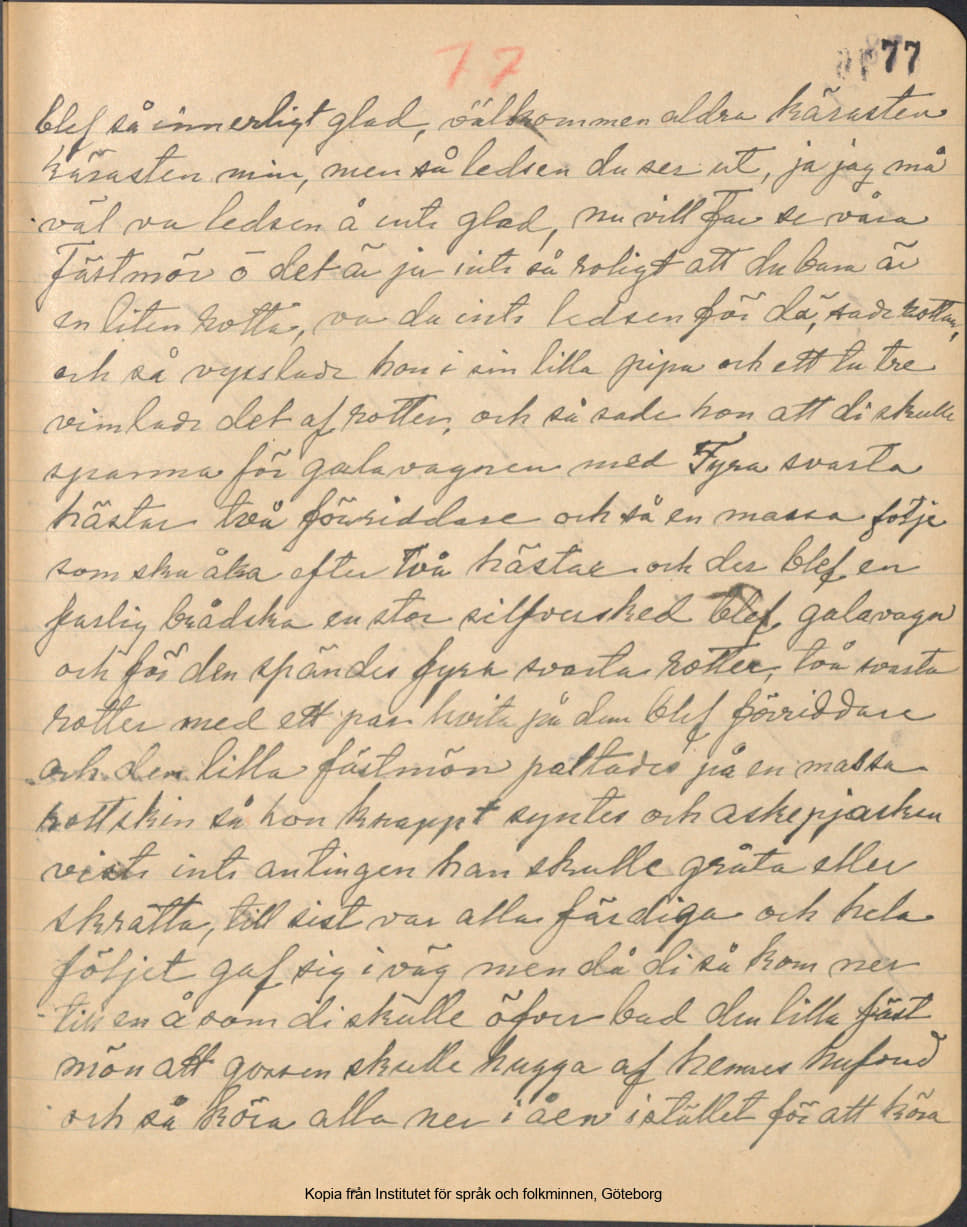 77
77
blef så innerligt glad, välkommen aldra kärasten
kärasten min, men så ledsen du ser ut, ja jag må
väl va ledsen å inte glad, nu vill Far se våra
Fästmör ö det är ju inte så roligt att du bara är
en liten rotta, va du inte ledsen för dä, sade rottan,
och så vysslade hon i sin lilla pipa och ett tu tre
vimlade det af rotter, och så sade hon att di skulle
spanna för galavagnen med Fyra svarta
hästar två förriddare och så en massa följe
som ska åka efter två hästar och der blef en
farlig brådska en stor silfversked blef galavagn
och för den spändes fyra svarta rotter, två svarta
rotter med ett par hvita på dem blef förriddare
och den lilla fästmön paltades på en massa
rottskin så hon knappt syntes och askepjasken
viste inte antingen han skulle gråta eller
skratta, till sist var alla färdiga och hela
följet gaf sig i väg men då di så kom ner
till en å som di skulle öfver bad den lilla fäst
mön att gossen skulle hugga af hennes hufvud
och så köra alla ner i åen istället för att köra
Kopia från Institutet för språk och folkminnen, Göteborg